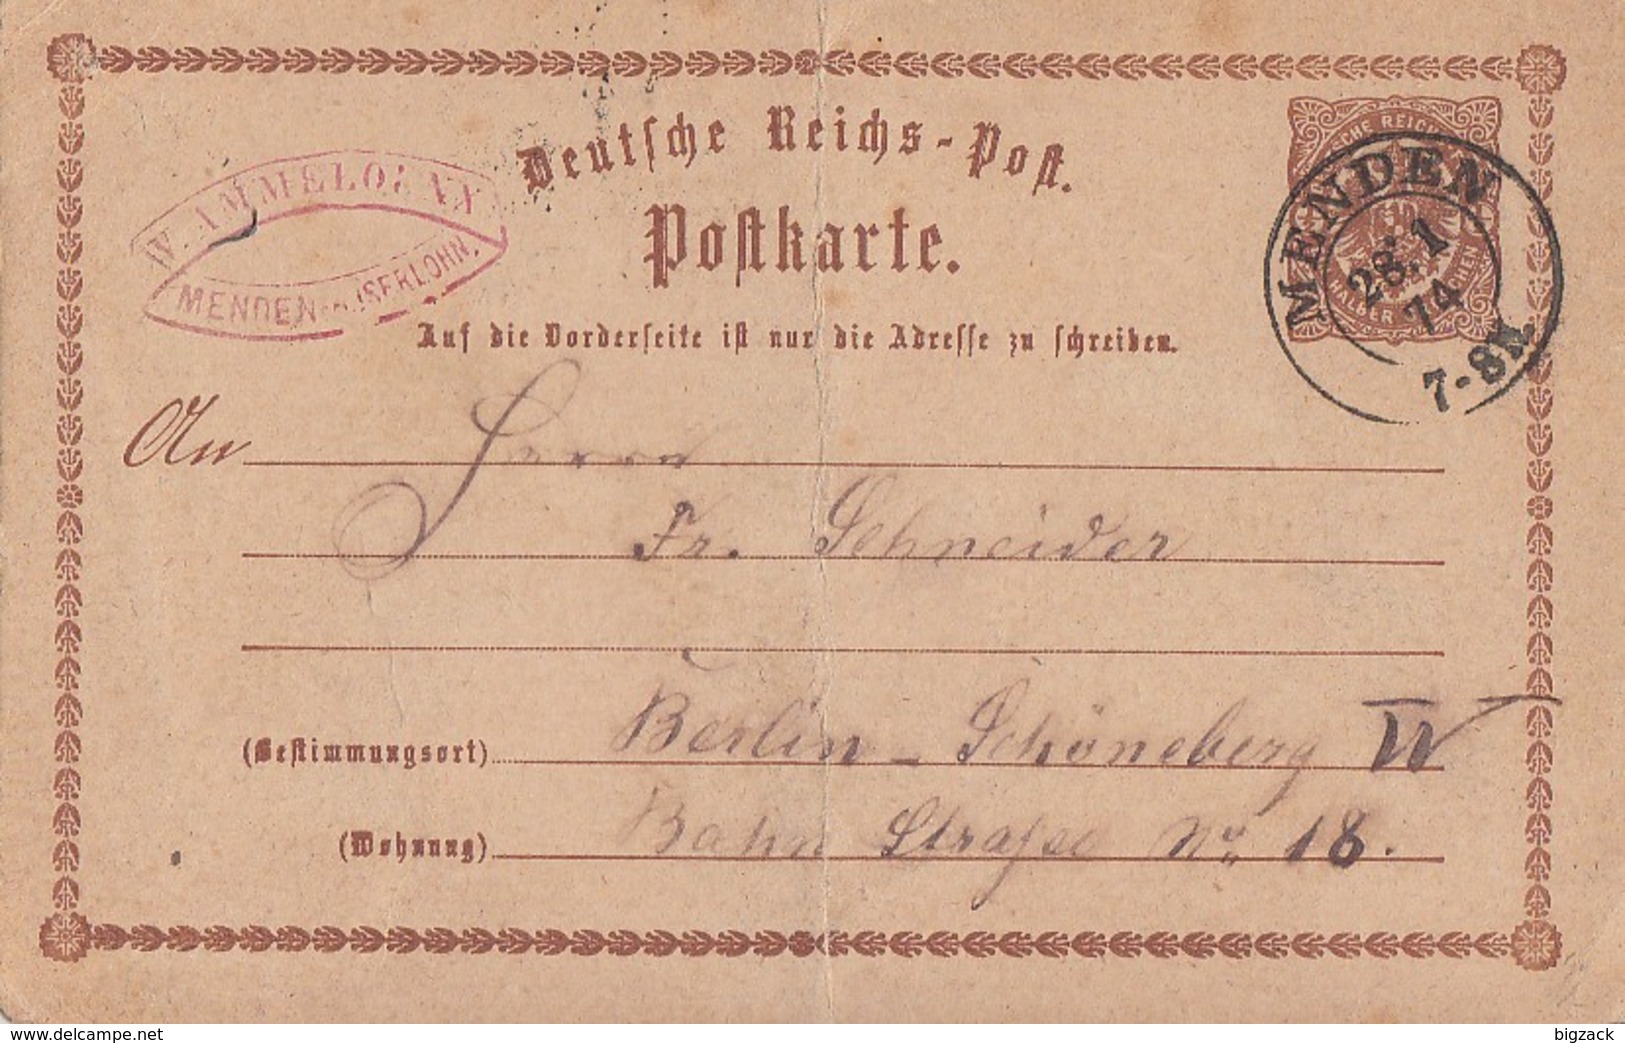 Deutsche Reichs-Post.
Postkarte.
W. AMMELOUNX
MENDEN-ISERLOHN.
DEUTSCHE REICHSPOST
HALBER GROSCHEN
MENDEN
28. 1
74
7-8N.
Auf die Vorderseite ist nur die Adresse zu schreiben.
An Herrn
Fr. Schneider
(Bestimmungsort) Berlin-Schöneberg W
(Wohnung) Bahn Strasse No 18.
www.delcampe.net
bigzack